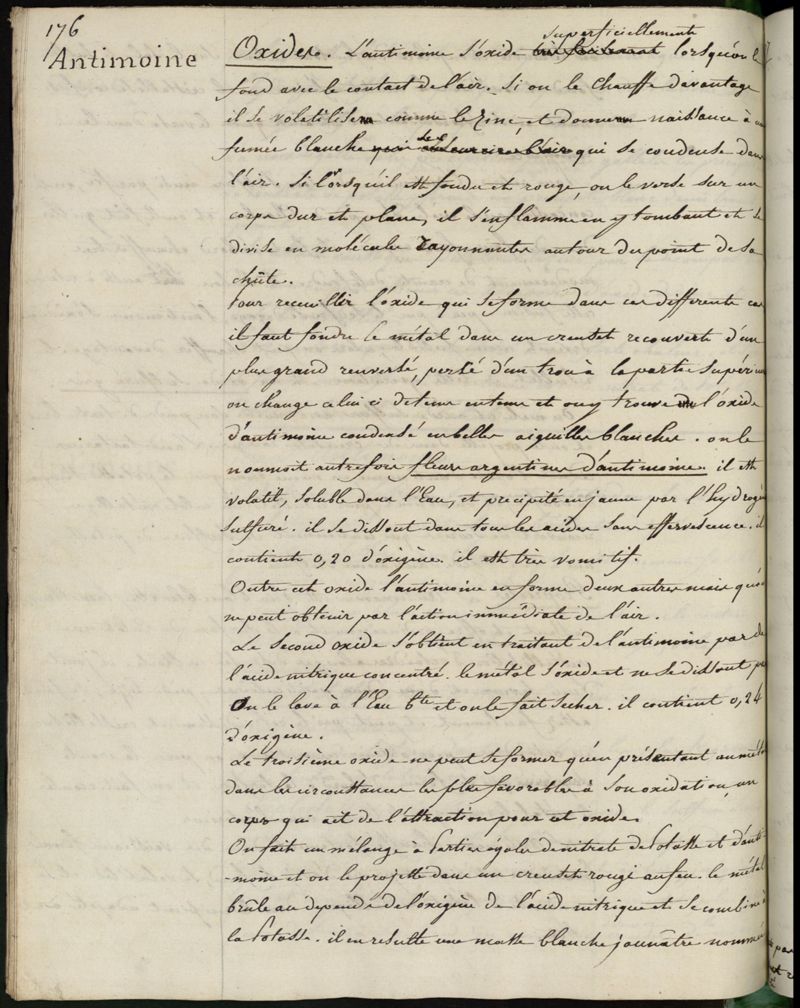 176
Antimoine
superficiellement
Oxides. L'antimoine s'oxide lorsqu'on le
fond avec le contact de l'air. Si on le chauffe davantage
il se volatilise comme le zinc, et donne naissance à une
fumée blanche qui se condense dans
l'air. Si lorsqu'il est fondu et rouge, on le verse sur un
corps dur et plane, il s'enflamme en y tombant et se
divise en molécules rayonnantes autour du point de sa
chûte.
Pour recueillir l'oxide qui se forme dans ces differents cas
il faut fondre le métal dans un creuset recouvert d'un
plus grand renversé, percé d'un trou à la partie supérieure
on change celui ci de tems en tems et on y trouve de l'oxide
d'antimoine condensé en belles aiguilles blanches. on le
nommoit autrefois fleurs argentines d'antimoine. il est
volatil, soluble dans l'Eau, et précipité en jaune par l'hydrogène
sulfuré. il se dissout dans tous les acides sans effervescence. il
contient 0,20 d'oxigène. il est très vomitif.
Outre cet oxide l'antimoine en forme deux autres mais qu'on
ne peut obtenir par l'action immédiate de l'air.
Le second oxide s'obtient en traitant de l'antimoine par de
l'acide nitrique concentré. le métal s'oxide et ne se dissout pas
On le lave à l'Eau bte et on le fait secher. il contient 0,24
d'oxigène.
Le troisième oxide ne peut se former qu'en présentant au métal
dans les circonstances les plus favorables à son oxidation, un
corps qui ait de l'attraction pour cet oxide.
On fait un mélange à Parties égales de nitrate de Potasse et d'anti
-moine et on le projette dans un creuset rougi au feu. le métal
brûle au depends de l'oxigène de l'acide nitrique et se combine à
la Potasse. il en resulte une masse blanche jaunâtre nommée